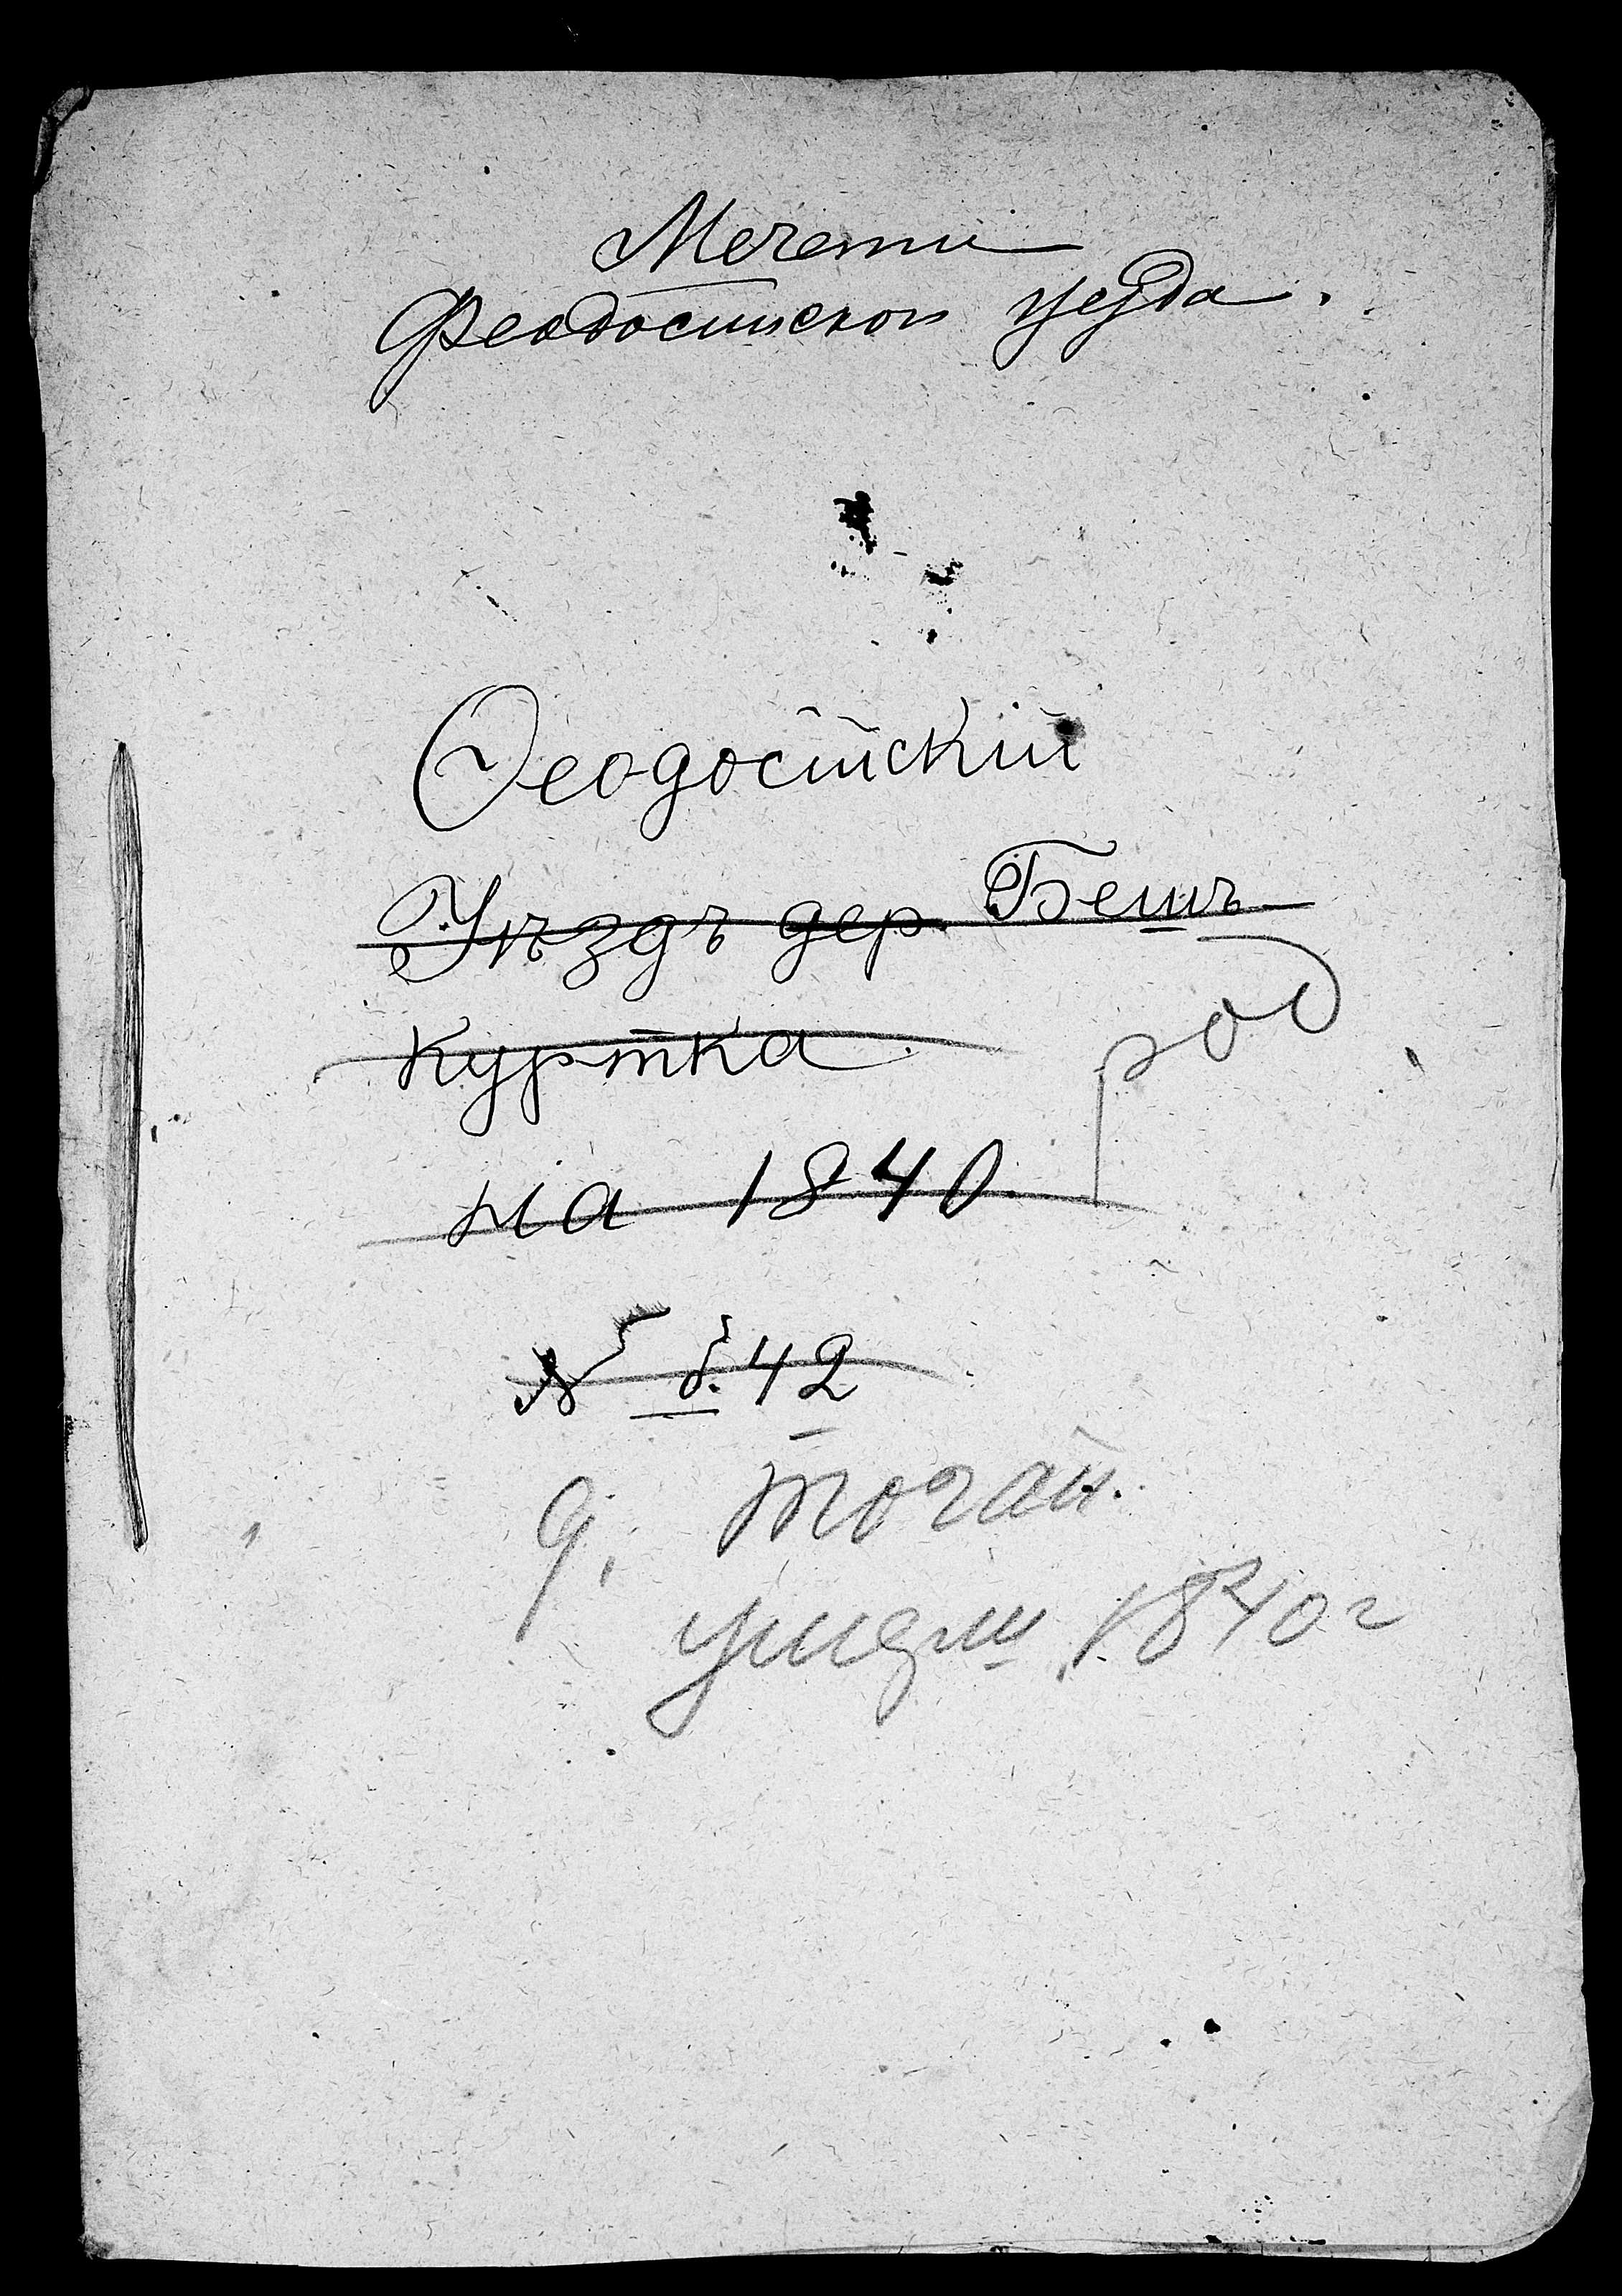 Мечети
Феодосийского уезда.
Ѳеодосійскій
Уѣздъ дер. Бешъ
Куртка
род
на 1840.
№ д. 42
д. Тогай.
умерш. 1840 г